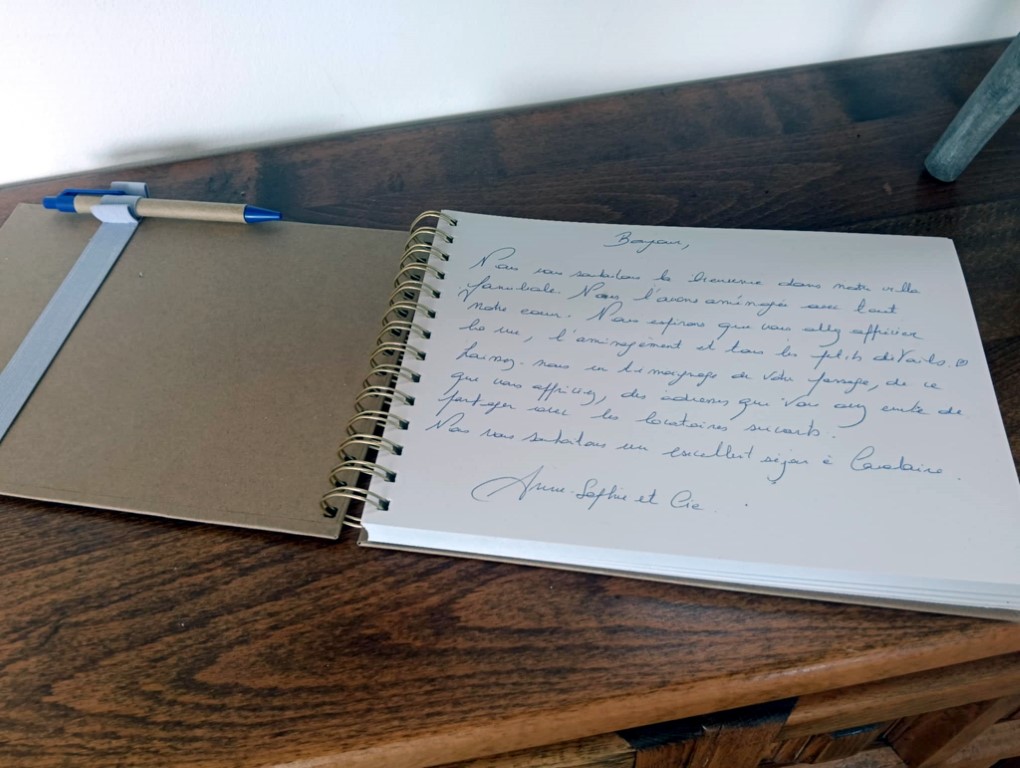 Bonjour,
Nous vous souhaitons la bienvenue dans notre villa
familiale. Nous l'avons aménagée avec tout
notre coeur. Nous espérons que vous allez apprécier
la vue, l'aménagement et tous les petits détails. ♡
Laissez-nous un témoignage de votre passage, de ce
que vous appréciez, des adresses que vous avez envie de
partager avec les locataires suivants.
Nous vous souhaitons un excellent séjour à Cavalaire.
Anne-Sophie et Cie